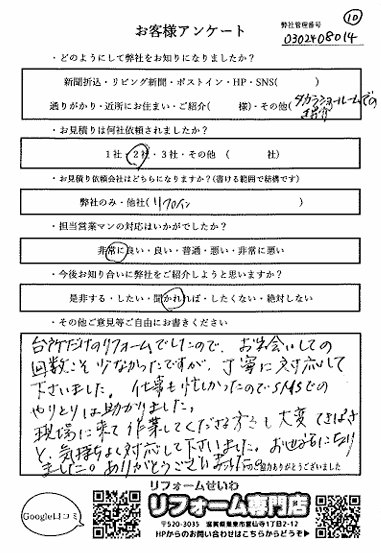 お客様アンケート
弊社管理番号
⑩
0302408014
・どのようにして弊社をお知りになりましたか？
新聞折込・リビング新聞・ポストイン・HP・SNS( )
通りがかり・近所にお住まい・ご紹介( 様)・その他(タカラショールームでの
・お見積りは何社依頼されましたか？
1社・2社・3社・その他 ( 社)
・お見積り依頼会社はどちらになりますか？(書ける範囲で結構です)
弊社のみ・他社(リフォイン )
・担当営業マンの対応はいかがでしたか？
非常に良い・良い・普通・悪い・非常に悪い
・今後お知り合いに弊社をご紹介しようと思いますか？
是非する・したい・聞かれれば・したくない・絶対しない
・その他ご意見等ご自由にお書きください
台所だけのリフォームでしたので、お出会いしての
回数こそ少なかったですが、丁寧に対応して
下さいました。仕事も忙しかったのでSMSでの
やりとりは助かりました。
現場に来て作業してくださる方も大変てきぱき
と、気持ちよく対応して下さいました。お世話になり
ました。ありがとうございました。
ご協力ありがとうございました
Google口コミ
リフォームせいわ
リフォーム専門店
〒520-3035 滋賀県栗東市霊仙寺1丁目2-12
HPからのお問い合わせはこちらからどうぞ➡